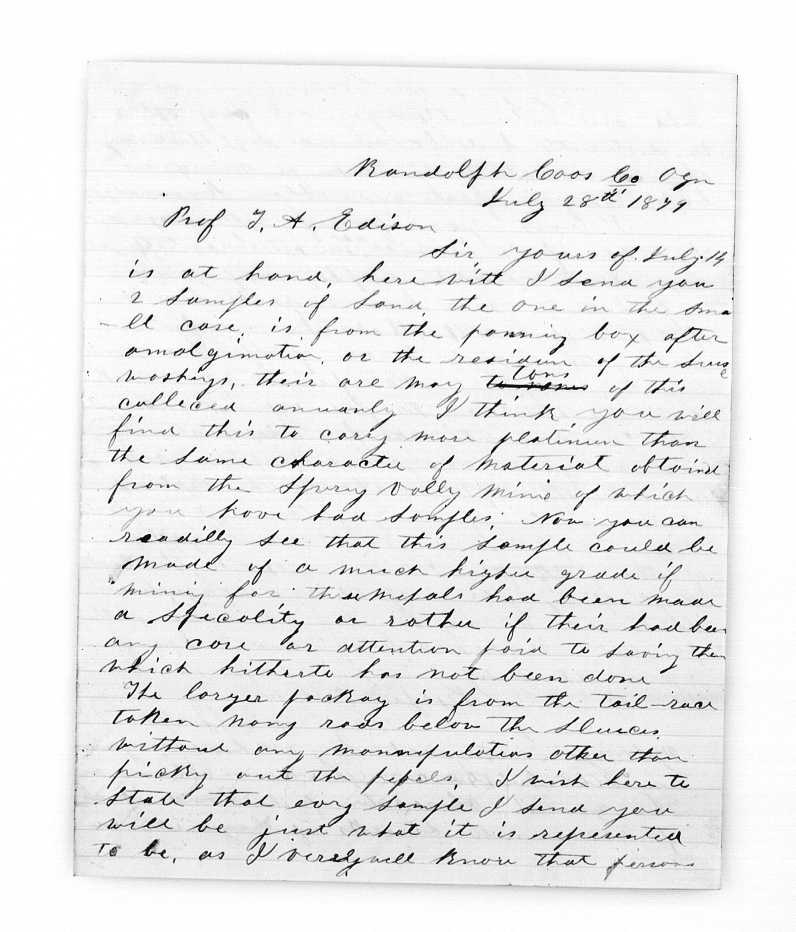 Randolph Coos Co Ogn
July 28th 1879
Prof T. A. Edison
Sir, yours of July 14
is at hand, here with I send you
2 samples of sand, the one in the sma
ll case, is from the panning box after
amalgimation, or the residium of the sluce
washeys, their are many tons of this
colleced anuanly I think you will
find this to carry more platinum than
the same charactie of material obtaind
from the Spring Vally mine of which
you have had samples. Now you can
readilly see that this sample could be
made of a much higher grade if
mining for these metals had been made
a specality or rather if their had been
any care or attention paid to saving them
which hitherto has not been done
The larger packag is from the tail-race
taken many rods below the sluces.
without any mannipulation other than
picky out the pebels. I wish here to
state that evry sample I send you
will be just what it is represented
to be, as I very well know that persons